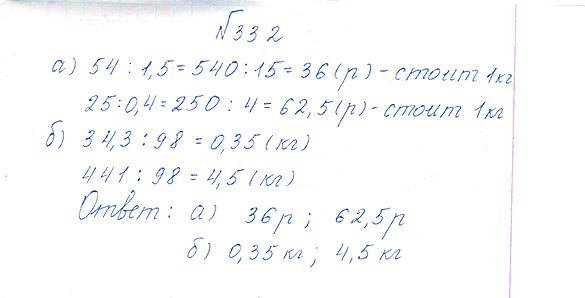 №332
а) 54 : 1,5 = 540 : 15 = 36 (р) - стоит 1 кг
25 : 0,4 = 250 : 4 = 62,5 (р) - стоит 1 кг
б) 34,3 : 98 = 0,35 (кг)
441 : 98 = 4,5 (кг)
Ответ: а) 36 р ; 62,5 р
б) 0,35 кг ; 4,5 кг